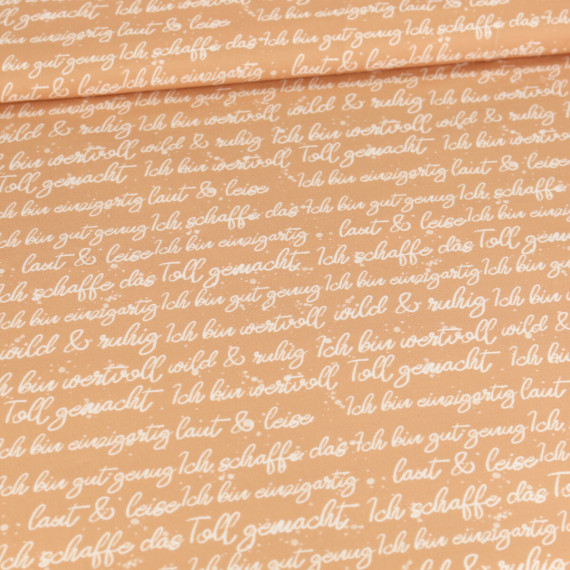 Ich bin einzigartig laut & leise Ich bin
Ich bin gut genug Ich schaffe das Ich bin gut genug Ich
laut & leise Ich bin einzigartig laut & leise Ich bin einzigartig
Ich bin einzigartig Ich bin gut genug Ich schaffe das
wild & ruhig Ich bin wertvoll wild & ruhig Ich bin
Ich bin wertvoll wild & ruhig Ich bin wertvoll
Toll gemacht Ich bin wertvoll Toll gemacht Ich bin
Ich bin einzigartig laut & leise Ich bin einzigartig laut & leise
Ich bin gut genug Ich schaffe das Ich bin gut genug Ich schaffe
laut & leise Ich bin einzigartig laut & leise Ich bin
Ich schaffe das Toll gemacht Ich schaffe das Toll gemacht
Ich bin einzigartig Ich bin gut genug Ich bin einzigartig Ich bin
wild & ruhig Ich bin wertvoll wild & ruhig Ich bin
Ich bin wertvoll wild & ruhig Ich bin wertvoll wild &
Toll gemacht Ich bin wertvoll Toll gemacht Ich bin
Ich bin einzigartig laut & leise Ich bin einzigartig laut
Ich bin gut genug Ich schaffe das Ich bin gut genug Ich
laut & leise Ich bin einzigartig laut & leise Ich bin
Ich schaffe das Toll gemacht Ich schaffe das Toll
Ich bin gut genug Ich bin einzigartig Ich